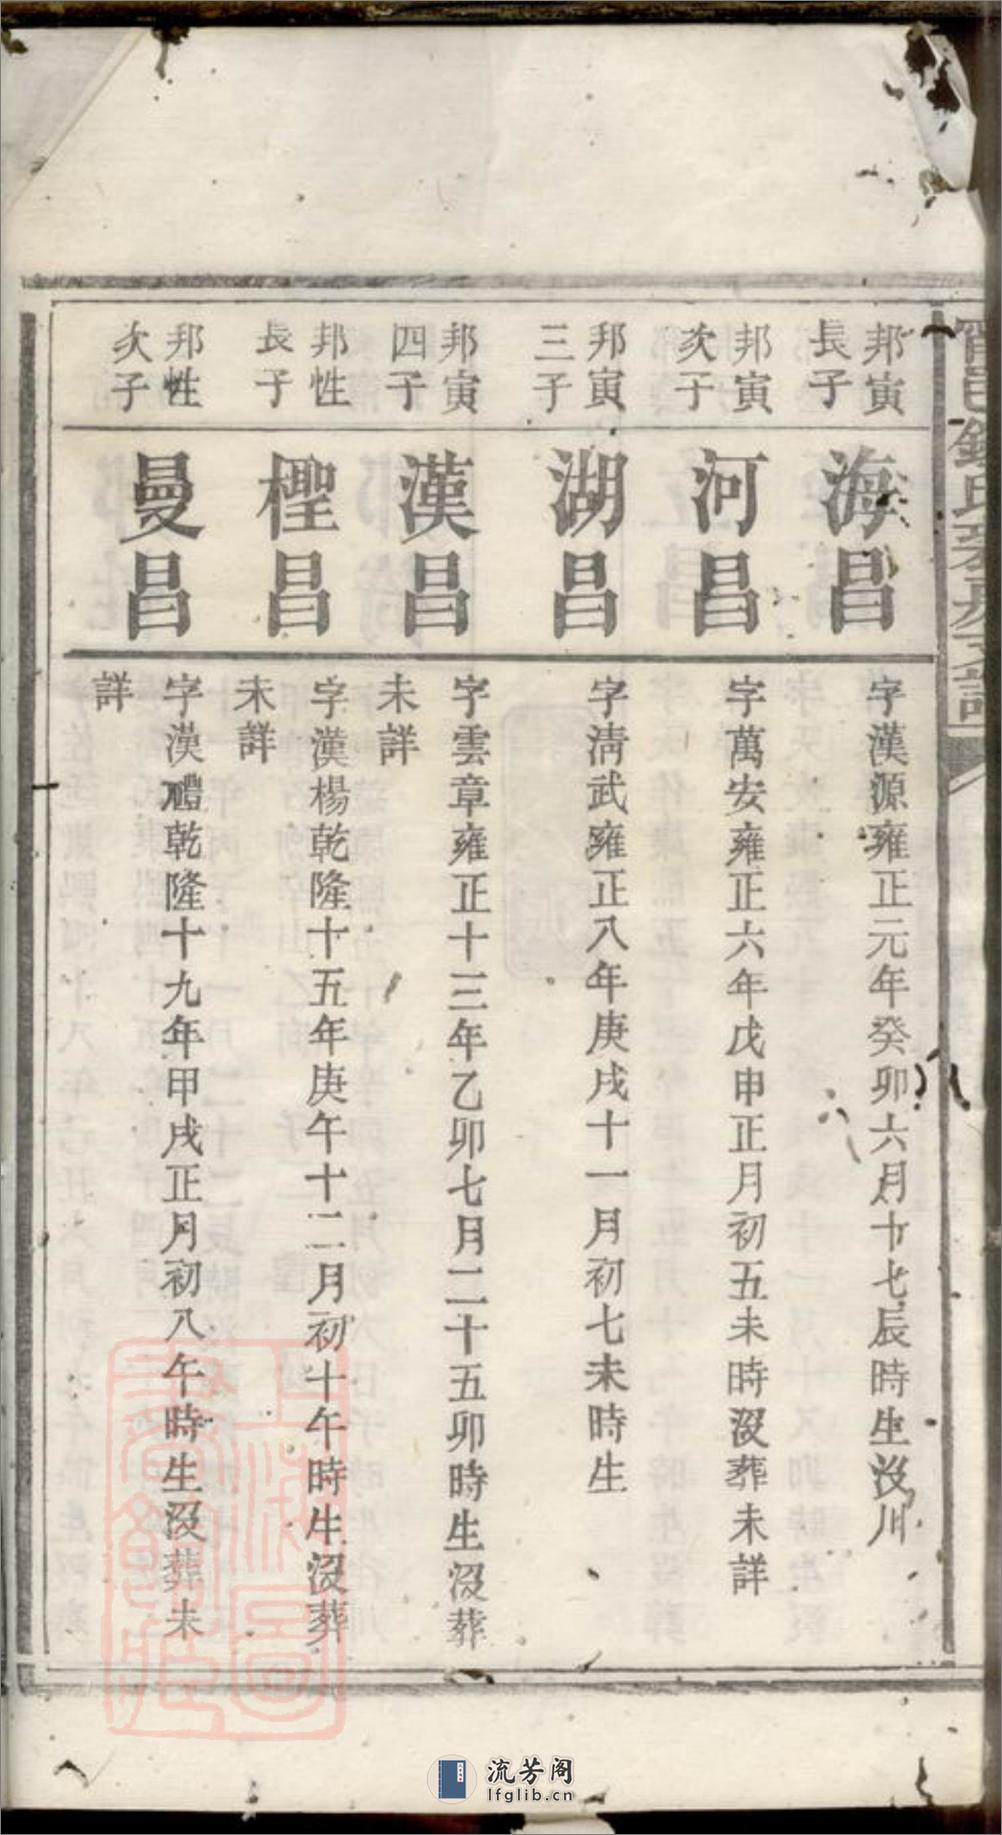 邦寅
長子
海昌
字漢源雍正元年癸卯六月十七辰時生沒川
邦寅
次子
河昌
字萬安雍正六年戊申正月初五未時沒葬未詳
邦寅
三子
湖昌
字清武雍正八年庚戌十一月初七未時生
邦寅
四子
漢昌
字雲章雍正十三年乙卯七月二十五卯時生沒葬
未詳
邦性
長子
檉昌
字漢楊乾隆十五年庚午十二月初十午時生沒葬
未詳
邦性
次子
曼昌
字漢禮乾隆十九年甲戌正月初八午時生沒葬未
詳
上海圖書館藏
流芳阁
lfglib.cn